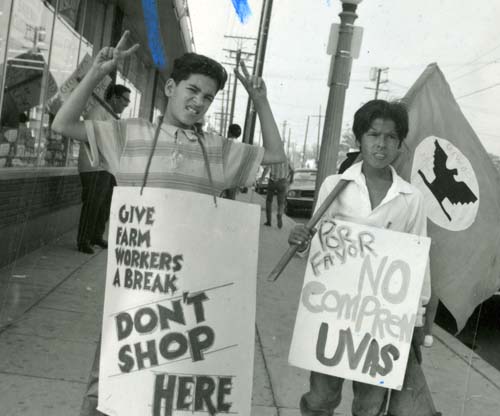 GIVE
FARM
WORKERS
A BREAK
DON'T
SHOP
HERE
PORR
FAVOR
NO
COMPREN
UVAS